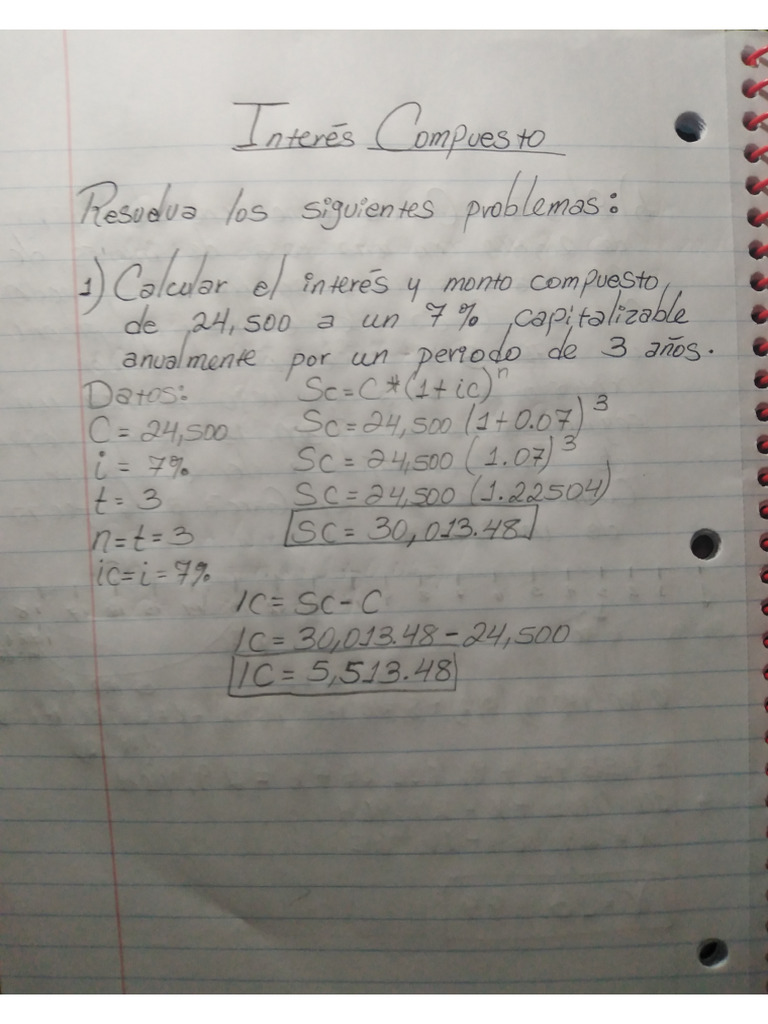 Interés Compuesto
Resuelva los siguientes problemas:
1) Calcular el interés y monto compuesto,
de 24,500 a un 7% capitalizable
anualmente por un periodo de 3 años.
Datos: Sc=C*(1+ic)^n
C = 24,500 Sc=24,500 (1+0.07)^3
i = 7% Sc = 24,500 (1.07)^3
t = 3 SC = 24,500 (1.22504)
n=t=3 SC = 30,013.48
ic=i=7%
IC = SC - C
IC = 30,013.48 - 24,500
IC = 5,513.48